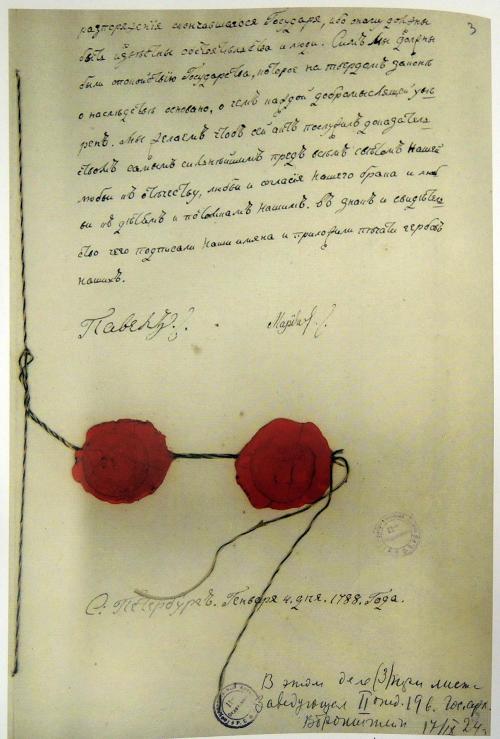 3
разпоряжения скончавшагося Государя, ибо оныи должны
быть извѣстны обстоятельства и люди. Симъ мы должны
были спокойствию Государства, которое на твердомъ законѣ
о наслѣдствѣ основано, о чемъ каждой добромыслящей увѣ
ренъ. Мы делаемъ чтобъ сей актъ послужилъ доказатель
ствомъ самымъ сильнѣйшимъ предъ всемъ свѣтомъ Нашей
любви къ отѣчеству, любви и согласия Нашего брака и люб
ви къ дѣтямъ и потомкамъ Нашимъ. Въ знакъ и свидѣтель
ство чего подписали Наши имяна и приложили пѣчати гербовъ
нашихъ.
Павелъ
Марiя
С: Петербургъ. Генваря 4. дня. 1788. Года.
В этом деле (3) три листа
Заведующий II отд. 196. Гос. арх.
17/IX 24 г.